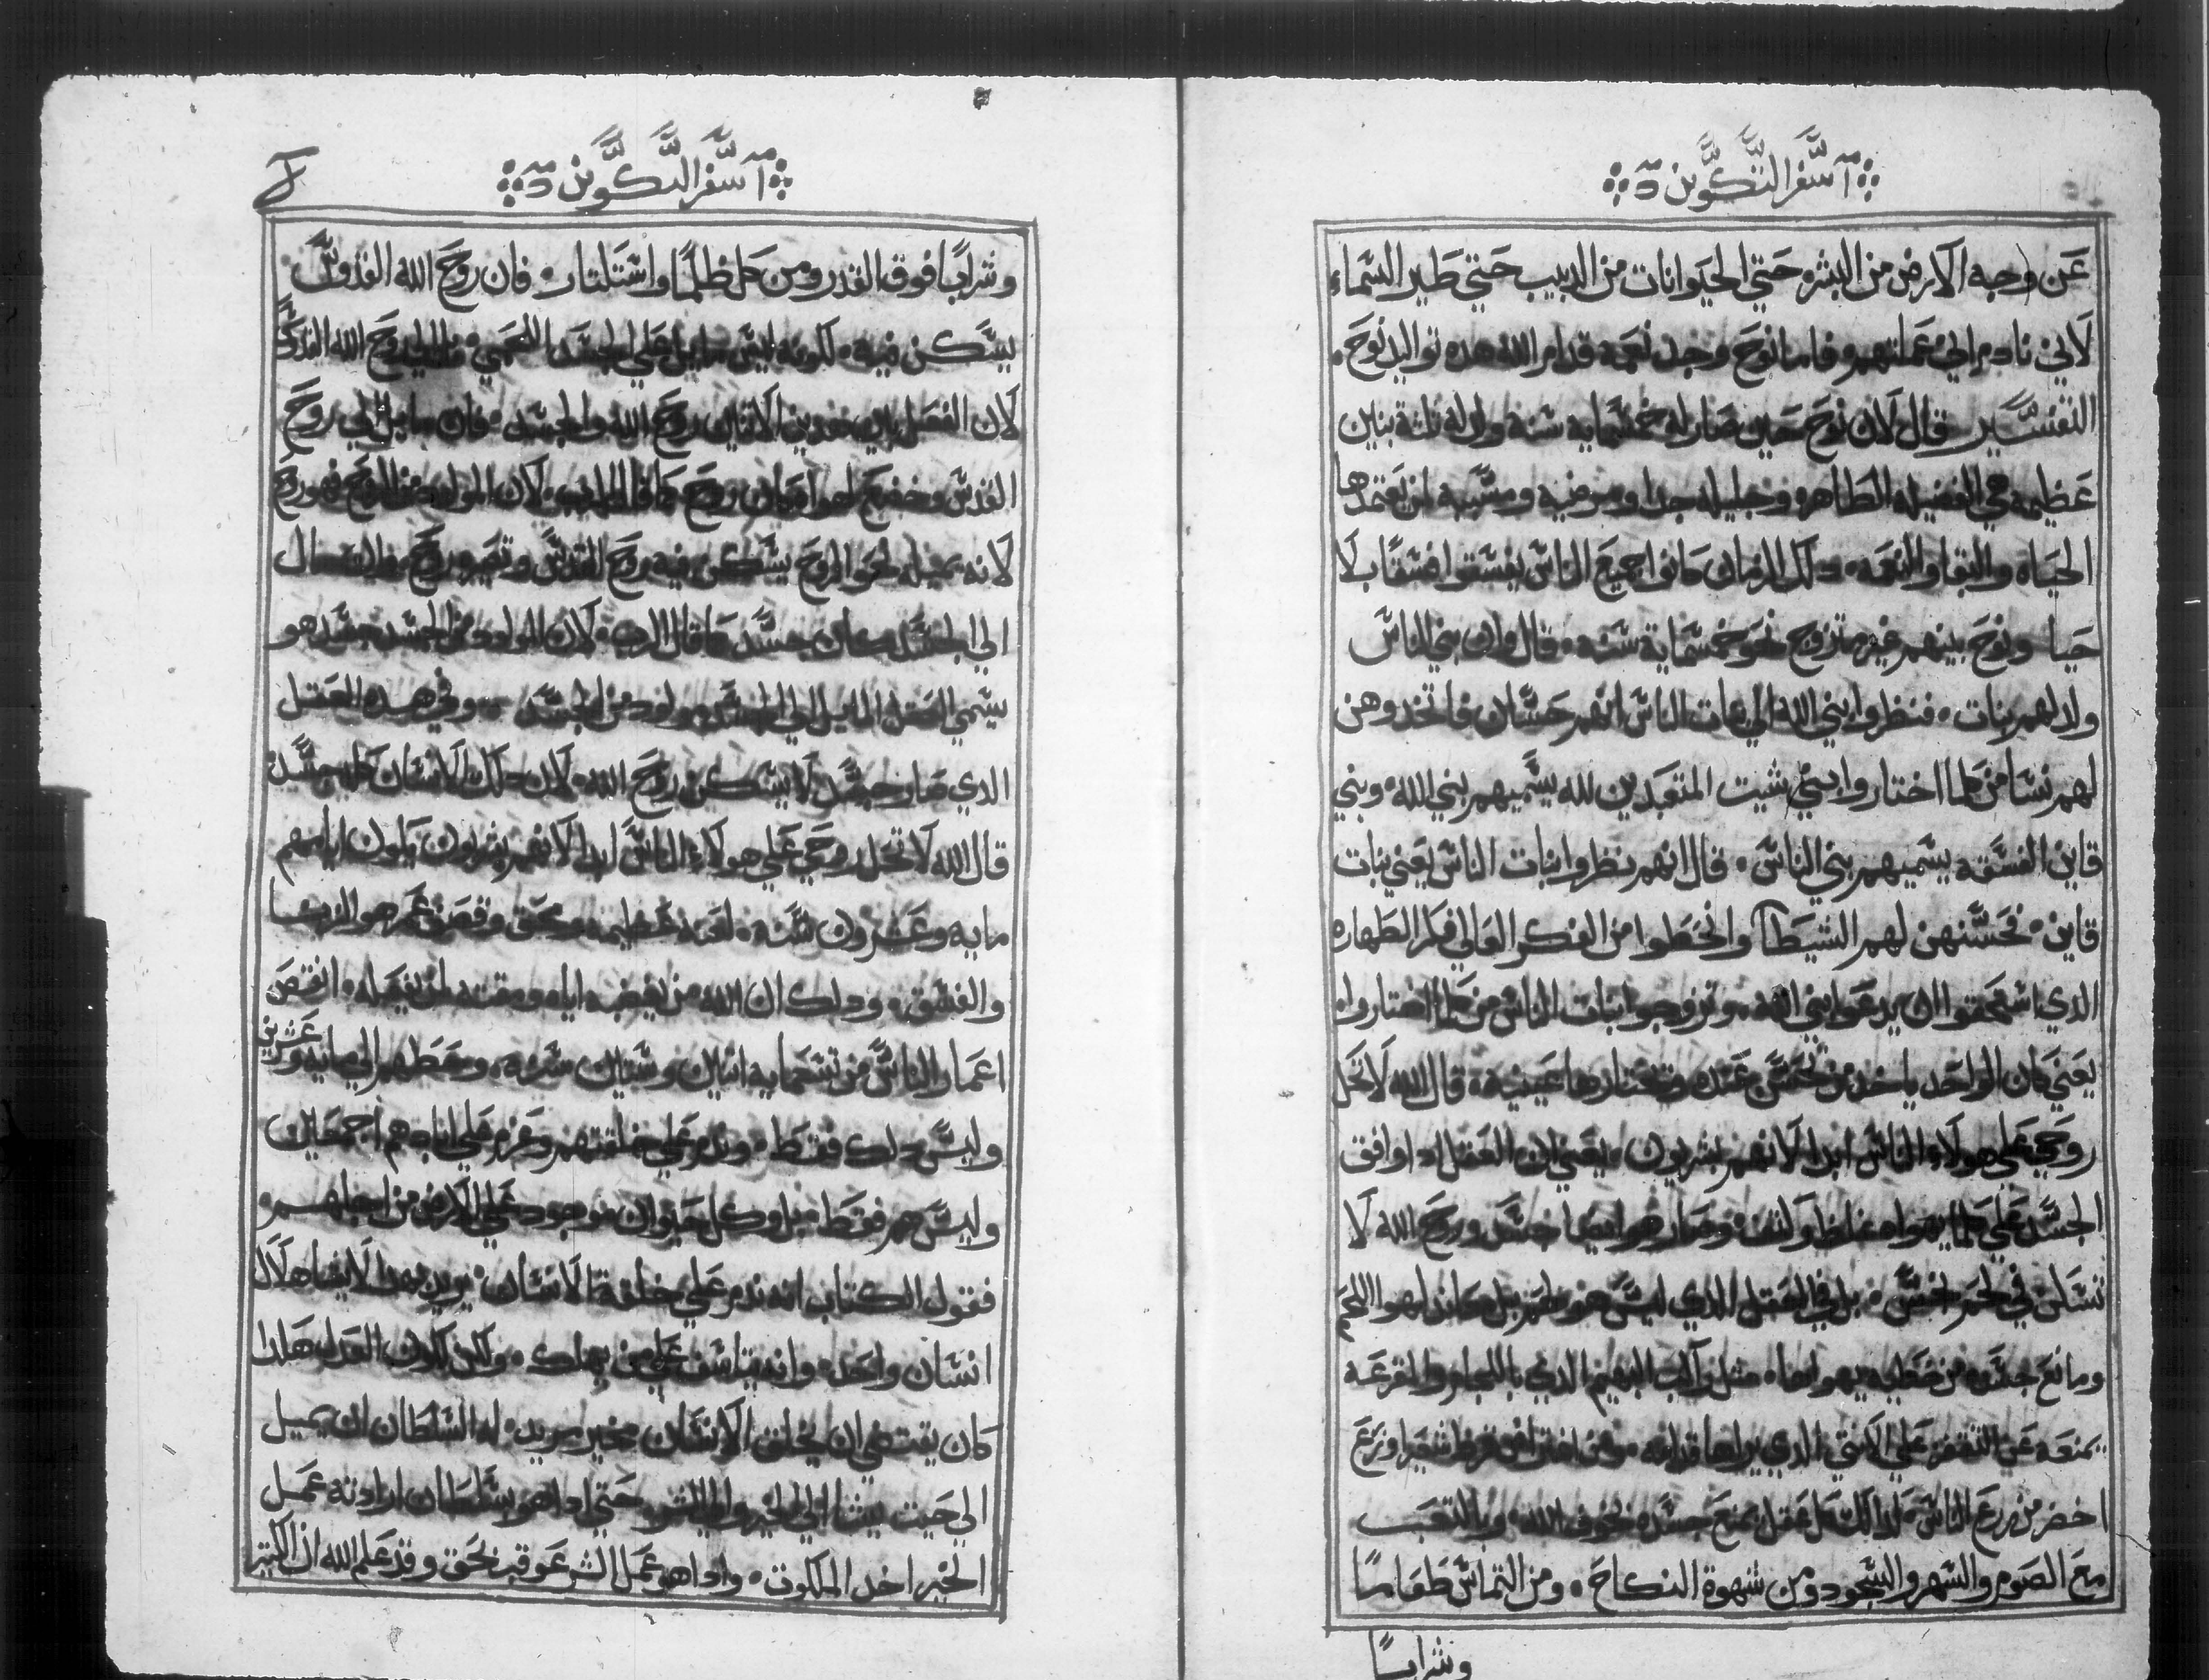 ا سفر التكوين
عن وجه الارض من البشر حتي الحيوانات من الدبيب حتي طير السماء
لاني نادم اني عملتهم فاما نوح وجد نعمه قدام الله هده تواليد نوح
التفسير قال لان نوح حين صار له خمسمايه سنه ولد له تلتة بنين
عظيمه هي الفضيله الطاهره وجليله جدا ومرضيه ومسببه لمن يعتمدها
الحياه والبقا والنعمه دلك الزمان كانوا جميع الناس يفسقوا فسقًا بلا
حيا ونوح بينهم غير متزوج نحو خمسماية سنه قال وان بني الناس
ولد لهم بنات فنظروا بني الله الي بنات الناس انهم حسان فاتخدوهن
لهم نسا من كلما اختاروا بني شيت المتعبدين لله يسميهم بني الله وبني
قاين الفسقه يسميهم بني الناس قال انهم نظروا بنات الناس يعني بنات
قاين فحسنهن لهم الشيطان وانحطوا من الفكر العالي فكر الطهاره
الدي استحقوا ان يدعوا بني الله وتزوجوا بنات الناس من كلما اختاروا
يعني كان الواحد ياخد من تحسن عنده وتختارها عينيه قال الله لا تحل
روحي علي هولاء الناس ابدا لانهم بشريون يعني ان العقل ادا وافق
الجسد علي كلما يهواه غلظ وصار هو ايضا جسد وروح الله لا
تسكن في لحم بل في العقل الدي ليس هو لحم بل معاند لهوا اللحم
ومانع جسده من يهواها متل راكب البهيم الدي باللجام والمقرعه
يمنعه عن القفز علي الانتي الدي يراها قدامه ومن شعير او زرع
اخضر من زرع الناس كدلك كل عقل يمنع جسده بخوف الله وبالتعب
مع الصوم والسهر والسجود ومن شهوة النكاح ومن التماس طعامًا
وشرابًا
ا سفر التكوين
وشرابًا فوق القدر ومن كل ظلمًا واستكتار فان روح الله القدوس
يسكن فيه لكونه ليس مايل الي الجسد اللحمي مايل الي روح الله القدوس
لان العقل بين هدين الاتنين روح الله والجسد فان مايل الي روح
القدس وخضع لهواه كان روح كما قال الرب لان المولود من الروح فهو روح
لانه بميله نحو الروح يسكن فيه روح القدس وتصيره روح وان مال
الي الجسد كان جسد كما قال الرب لان المولود من الجسد جسد هو
يسمي العقل المايل الي الجسد مولود من الجسد وفي هده العقل
الدي صار جسد لا يسكن روح الله لان دلك الانسان كله جسد
قال الله لا تحل روحي علي هولاء الناس ابدا لانهم بشريون يكون ايامهم
مايه وعشرون سنه لعنه عظيمه ومحق ونقص عمر هو الزنا
والفسق ودلك ان الله من بغضه اياه ومقته لمن يفعله انقص
اعمار الناس من تسعمايه اتنين وستين سنه وحطهم الي مايه وعشرين
وليس دلك فقط وندم علي خلقتهم وعزم علي ابادهم اجمعين
وليس هم فقط بل وكل حيوان موجود علي الارض من اجلهم
فقول الكتاب انه ندم علي خلقة الانسان يريد بهدا لا يشا هلاك
انسان واحد وانه يتاسف علي من يهلك ولكن لكون العدل هكدا
كان يقتضي ان يخلق الانسان مخير مريد له السلطان ان يميل
الي حيت يشا الي الخير والي الشر حتي ادا هو بسلطان ارادته عمل
الخير اخد الملكوت وادا هو عمل الشر عوقب بحق وقد علم الله ان الكتير